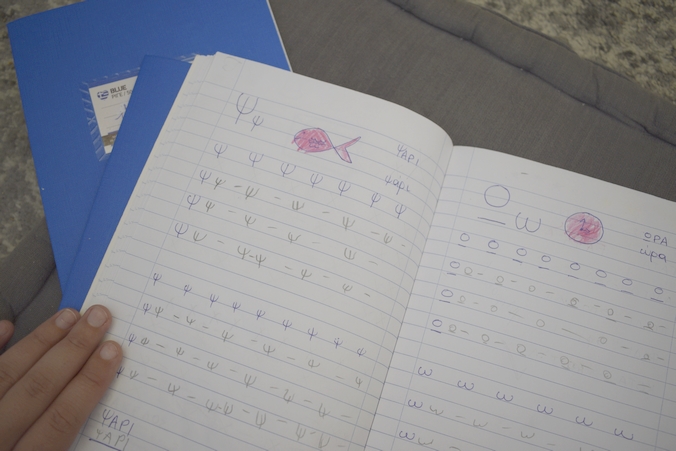 BLUE
Ψ ψ
ΨΑΡΙ
ψαρι
ψ ψ ψ ψ ψ ψ ψ
ψ ψ - ψ - ψ - ψ - ψ -
ψ ψ - ψ - ψ - ψ
ψ ψ - ψ-ψ - ψ - ψ -
ψ ψ ψ ψ ψ ψ ψ ψ ψ
ψ ψ - ψ - ψ - ψ - ψ
ψ ψ - ψ - ψ - ψ - ψ -
ψ ψ - ψ - ψ-ψ - ψ - ψ - ψ-ψ -
ΨΑΡΙ
ΨΑΡΙ
Ω ω
ΩΡΑ
ώρα
Ω Ω Ω Ω Ω Ω Ω Ω
Ω Ω - Ω - Ω - Ω - Ω - Ω -
Ω Ω - Ω - Ω - Ω - Ω -
Ω Ω - Ω - Ω - Ω - Ω -
ω ω ω ω ω ω
ω ω - ω - ω - ω
ω ω - ω - ω